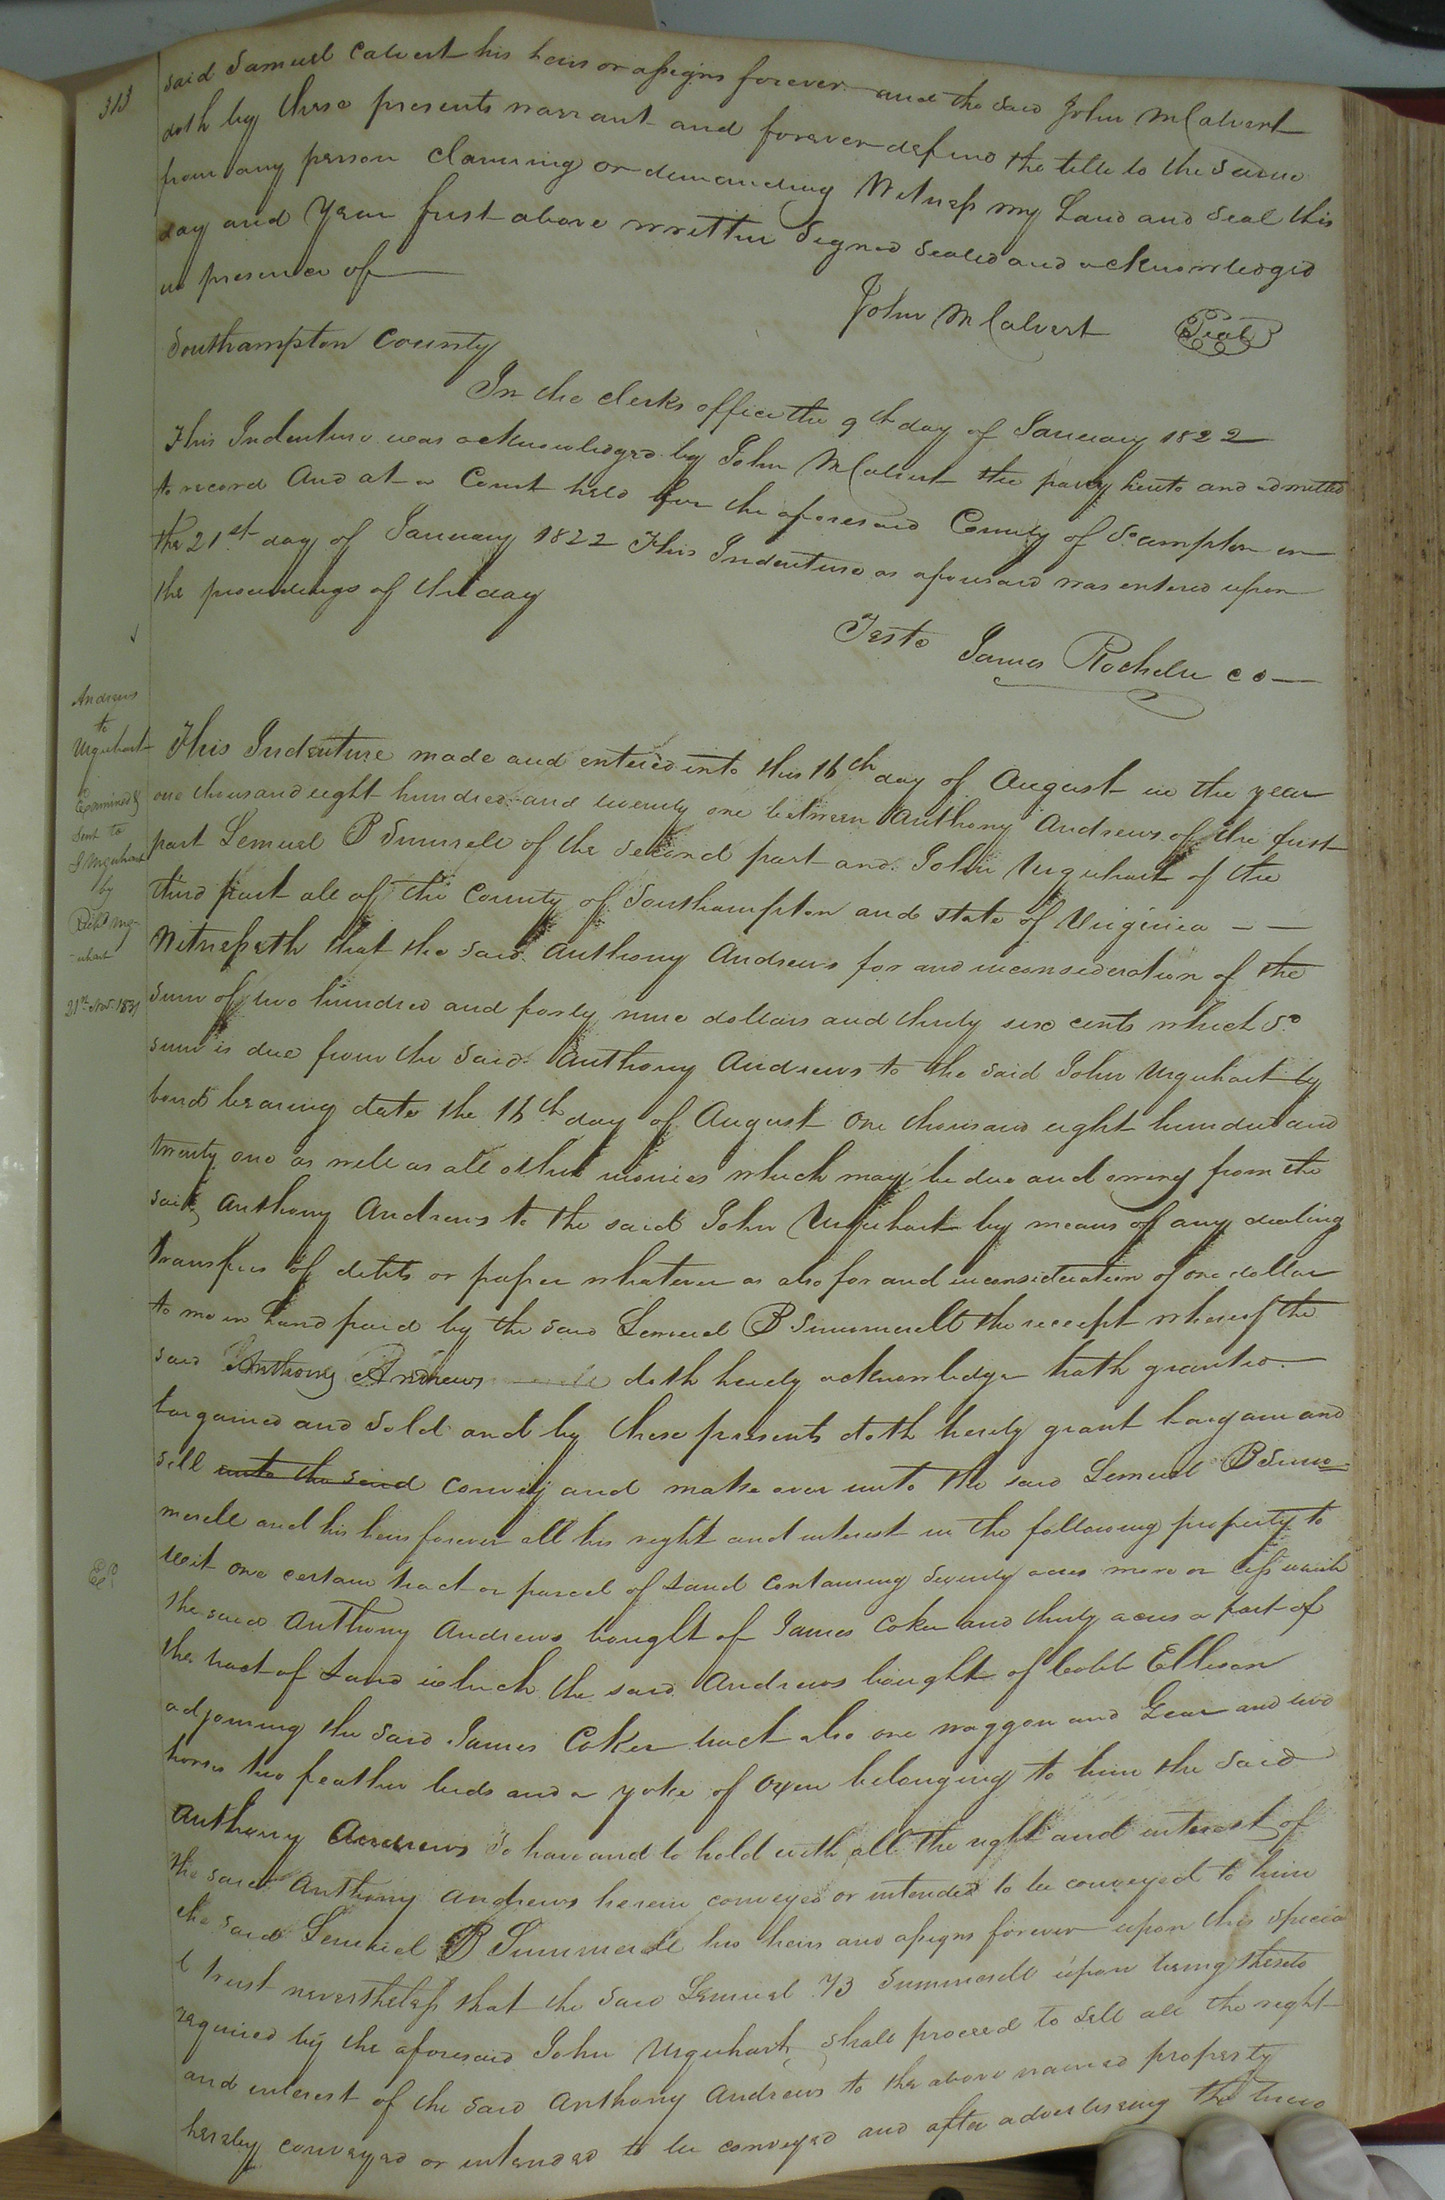 313
said Samuel Calvert his heirs or assigns forever and the said John M Calvert
doth by these presents warrant and forever defend the title to the same
from any person claiming or demanding Witness my hand and seal this
day and Year first above written Signed Sealed and acknowledged
in presence of
John M Calvert Seal
Southampton County
In the clerks office the 9th day of January 1822
This Indenture was acknowledged by John M Calvert the party hereto and admitted
to record And at a Court held for the aforesaid County of So.ampton on
the 21st day of January 1822 This Indenture as aforesaid was entered upon
the proceedings of the day
Teste James Rochelle CC
Andrews
to
Urquhart
Examined &
Sent to
J Urquhart
by
Richd Urq-
-uhart
21st Nov. 1831
This Indenture made and entered into this 16th day of August in the year
one thousand eight hundred and twenty one between Anthony Andrews of the first
part Lemuel B Summrell of the second part and John Urquhart of the
third part all of the County of Southampton and state of Virginia — —
Witnesseth that the said Anthony Andrews for and inconsideration of the
sum of two hundred and forty nine dollars and thirty six cents which sd
sum is due from the said Anthony Andrews to the said John Urquhart by
bond bearing date the 16th day of August One thousand eight hundred and
twenty one as well as all other monies which may be due and owing from the
said Anthony Andrews to the said John Urquhart by means of any dealing
transfers of debts or paper whatever as also for and inconsideration of one dollar
to me in hand paid by the said Lemuel B Summerell the receipt whereof the
said Anthony Andrews doth hereby acknowledge hath granted
bargained and sold and by these presents doth hereby grant bargain and
sell unto the said convey and make over unto the said Lemuel B Sum-
merell and his heirs forever all his right and interest in the following property to
wit one certain tract or parcel of Land containing seventy acres more or less which
the said Anthony Andrews bought of James Coker and thirty acres a part of
the tract of Land which the said Andrews bought of Cobb Ellison
adjoining the said James Coker tract also one waggon and Gear and two
horses two feather beds and a yoke of Oxen belonging to him the said
Anthony Andrews To have and to hold with all the right and interest of
the said Anthony Andrews herein conveyed or intended to be conveyed to him
the said Lemuel B Summerell his heirs and assigns forever upon this specia
l trust nevertheless that the said Lemuel B Summerell upon being thereto
required by the aforesaid John Urquhart shall proceed to sell all the right
and interest of the said Anthony Andrews to the above named property
hereby conveyed or intended to be conveyed and after advertiseing the time